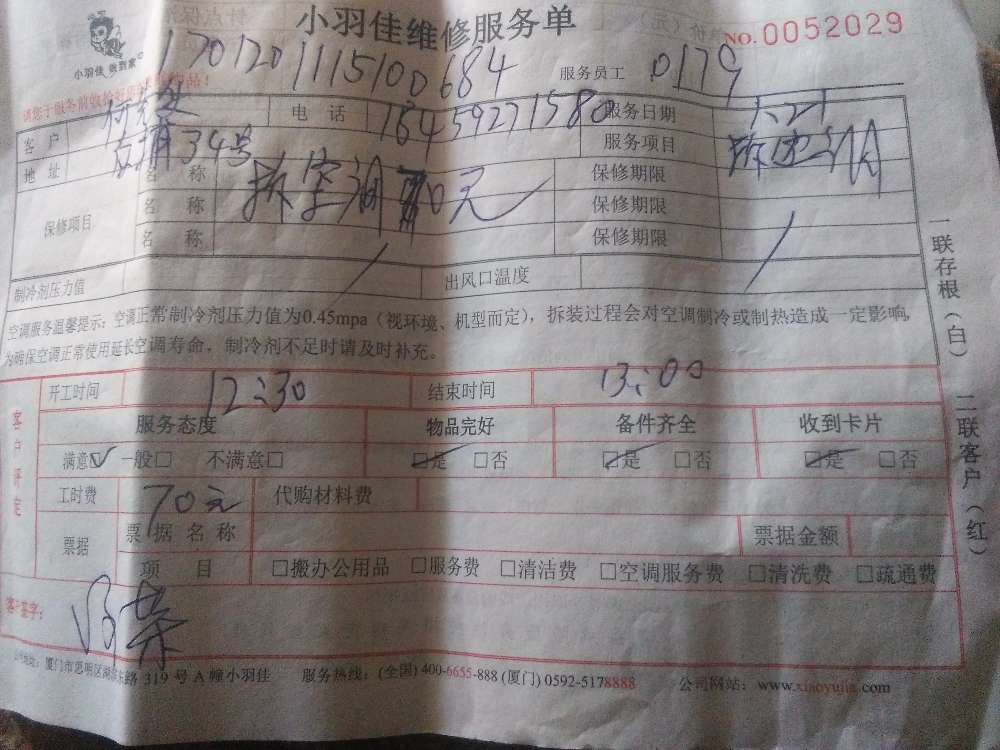 小羽佳维修服务单
NO. 0052029
小羽佳 做到家
1701201115100684 服务员工 0179
客户 电话 服务日期 1.21
地址 34号 服务项目 拆空调
保修项目 名称 拆空调 元 保修期限
名称 保修期限
名称 保修期限
制冷剂压力值 出风口温度
空调服务温馨提示：空调正常制冷剂压力值为0.45mpa（视环境、机型而定），拆装过程会对空调制冷或制热造成一定影响，
为确保空调正常使用延长空调寿命，制冷剂不足时请及时补充。
一联存根（白） 二联客户（红）
客户评定
开工时间 12:30 结束时间 13:00
服务态度 物品完好 备件齐全 收到卡片
满意☑ 一般□ 不满意□ ☑是 □否 ☑是 □否 ☑是 □否
工时费 70元 代购材料费
票据 票据名称 票据金额
项目 □搬办公用品 □服务费 □清洁费 □空调服务费 □清洗费 □疏通费
客户签字：
厦门市思明区湖滨东路 319 号 A 幢小羽佳 服务热线：(全国) 400-6655-888 (厦门) 0592-5178888 公司网站：www.xiaoyujia.com